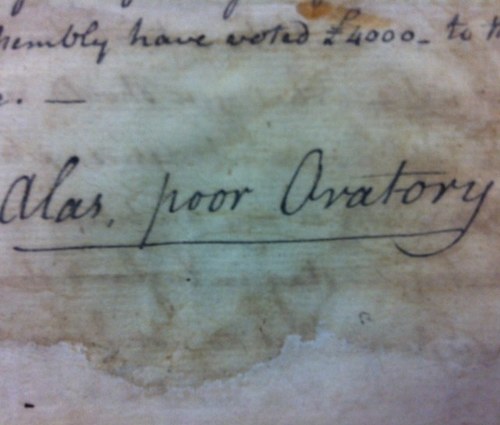 hembly have voted £4000- to th
e. —
Alas, poor Oratory